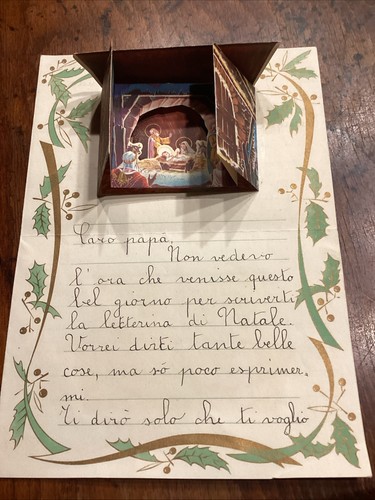 Caro papà,
Non vedevo
l'ora che venisse questo
bel giorno per scriverti
la letterina di Natale.
Vorrei dirti tante belle
cose, ma so poco esprimer,
mi.
Ti dirò solo che ti voglio